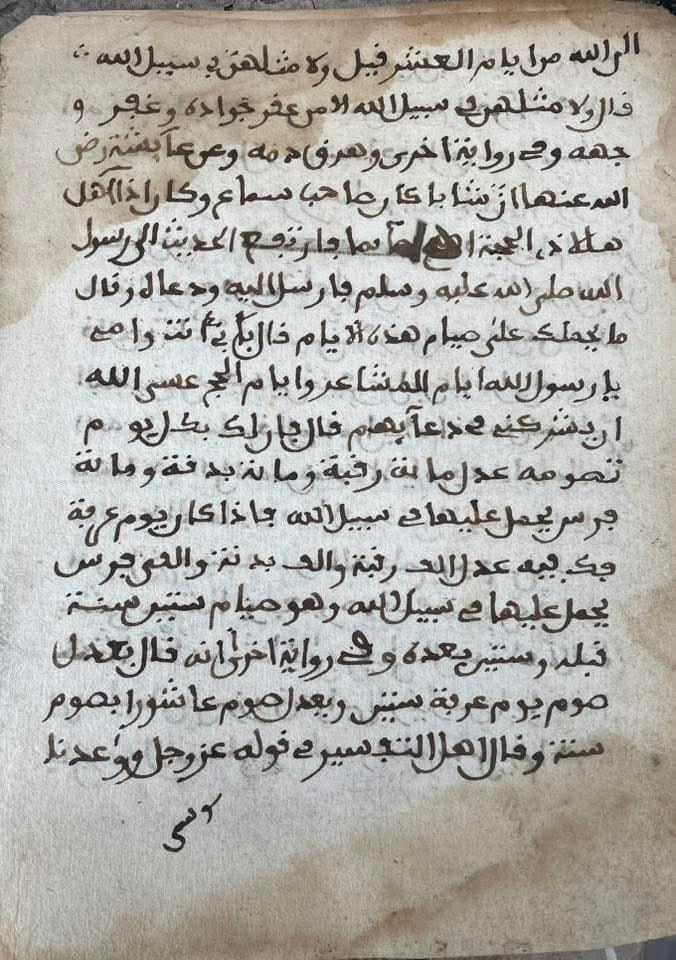 الى الله من ايام العشر قيل ولا مثلهن في سبيل الله
قال ولا مثلهن في سبيل الله الا من عفر جواده وعفر و
جهه وفي رواية اخرى وهرق دمه وعن عآيشة رض
الله عنها ان شابا كان صاحب سماع وكان اذا اهل
هلال ذي الحجة اصبح صآيما فارتفع الحديث الى رسول
الله صلى الله عليه وسلم فارسل اليه ودعاه وقال
ما يحملك على صيام هذه الايام قال بأبي أنت وامي
يا رسول الله ايام المشاعر وايام الحج عسى الله
ان يشركني في دعآيهم قال فان لك بكل يوم
تصومه عدل ماية رقبة وماية بدنة وماية
فرس يحمل عليها في سبيل الله فاذا كان يوم عرفة
فكفيه عدل الف رقبة والف بدنة والفي فرس
يحمل عليها في سبيل الله وهو صيام سنتين سنة
قبله وسنتين بعده وفي رواية اخرى انه قال يعدل
صوم يوم عرفة سنتين ويعدل صوم عاشورا بصوم
سنة وقال اهل التفسير في قوله عز وجل ووٰعدنا